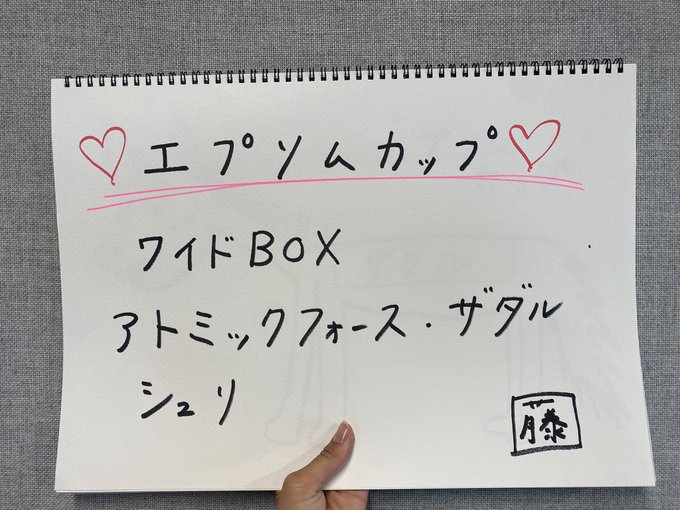 エプソムカップ
ワイドBOX
アトミックフォース・ザダル
シュリ
藤